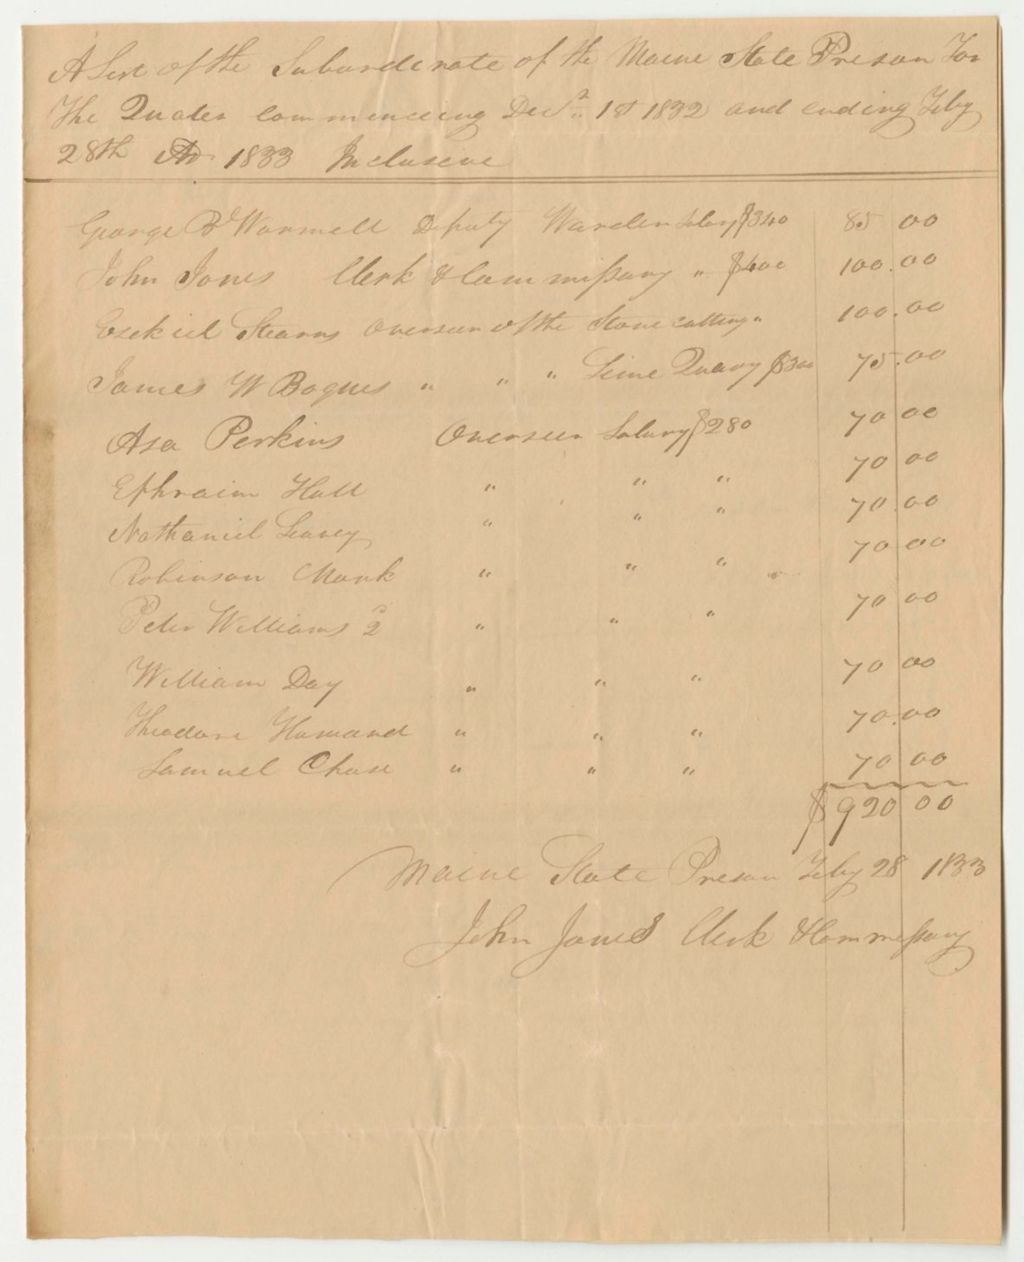 A List of the Subordinate of the Maine State Prison For
The Quater commencing Decr 1st 1832 and ending Feby
28th AD 1833 Inclusive
George B Wormell Deputy Warden Salary $340 85.00
John Jones Clerk & Commissary " $400 100.00
Ezekiel Stearns Overseer of the Stone cutting " 100.00
James W Bogues " " " Lime Quarry $300 75.00
Asa Perkins Overseer Salary $280 70 00
Ephraim Hall " " " 70 00
Nathaniel " " " 70.00
Robinson Monk " " " 70 00
Peter Williams 2d " " " 70 00
William Day " " " 70 00
Theodore " " " 70.00
Samuel Chase " " " 70 00
$920 00
Maine State Preson Feby 28 1833
John Jones Clerk & Commessary